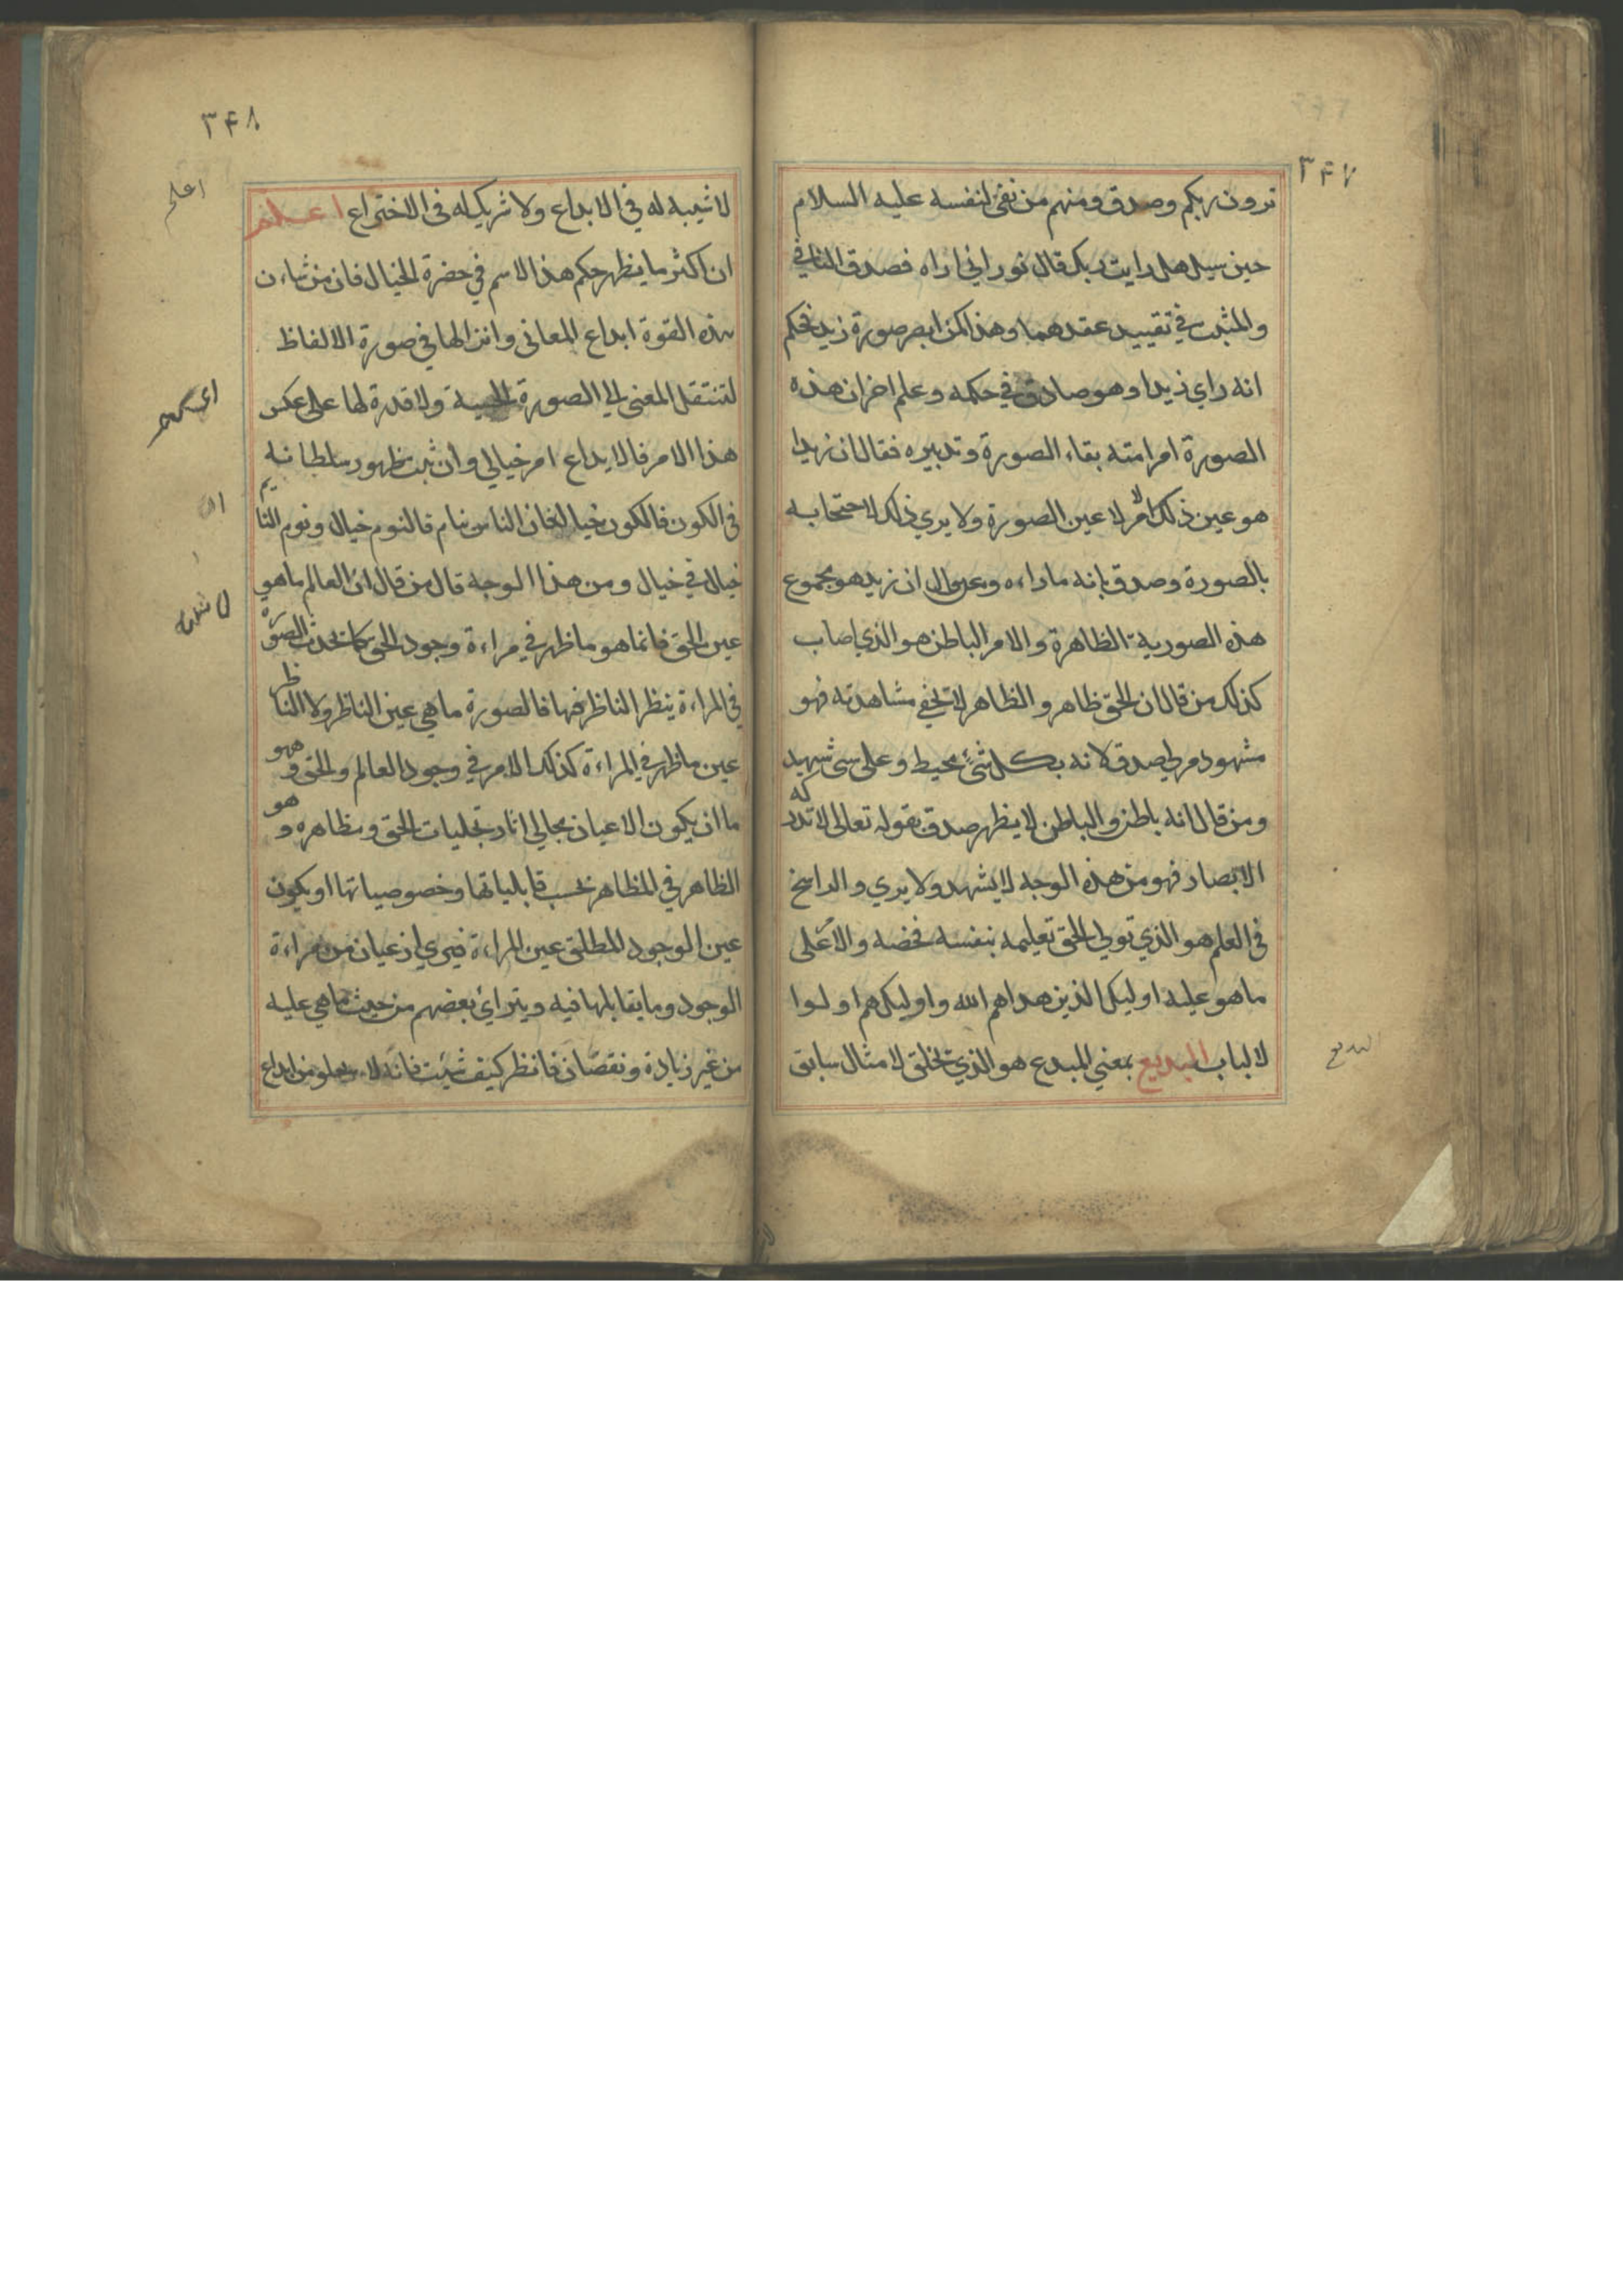 ۳۴۷
ترون ربكم وصدق ومنهم من نفى لنفسه عليه السلام
حين سيل هل رايت ربك قال نور انى اراه فصدق النافي
والمثبت في تقييد عقدهما وهذا كمن ابصر صورة زيد فحكم
انه راي زيدا وهو صادق في حكمه وعلم اخر ان هذه
الصورة امرا منه بقاء الصورة وتدبيره فقال ان زيدا
هو عين ذلك الامر لا عين الصورة ولا يري ذلك لاحتجابه
بالصورة وصدق بانه ما راءه ومن قال ان زيد هو مجموع
هذه الصورية الظاهرة والامر الباطن هو الذي اصاب
كذلك من قال ان الحق ظاهر والظاهر لا تخفي مشاهدته فهو
مشهود مرئ صدق لانه بكل شئ محيط وعلى شى شهيد
ومن قال انه باطن والباطن لا يظهر صدق بقوله تعالى لا تدركه
الابصار فهو من هذه الوجه لا يشهد ولا يري والراسخ
في العلم هو الذي تولي الحق تعليمه بنفسه فخصه والاعلى
ما هو عليه اوليك الذين هداهم الله واوليك هم اولوا
لالباب البديع بمعني المبدع هو الذي تخلق لا مثال سابق
البديع
۳۴۸
لا شبيه له في الابداع ولا شريك له في الاختراع اعلم
اعلم
ان اكثر ما يظهر حكم هذا الاسم في حضرة الخيال فان من شاءن
هذه القوة ابداع المعانى وانزالها في صورة الالفاظ
لتنتقل المعنى الي الصورة الحسية ولا قدرة لها على عكس
هذا الامر فالابداع امر خيالي وان ثبت ظهور سلطانه
في الكون فالكون خيال فان الناس نيام فالنوم خيال ونوم النايم
خيال في خيال ومن هذا الوجه قال من قال ان العالم ما هو
عين الحق فانما هو ما ظهر في مراءة وجود الحق كما تحدث الصورة
في المراءة ينظر الناظر فيها فالصورة ما هي عين الناظر ولا الناظر
عين ما ظهر في المراءة كذلك الامر في وجود العالم والحق وهو
ما ان يكون الاعيان مجالي اثار تجليات الحق ومظاهره وهو
الظاهر في المظاهر بحسب قابلياتها وخصوصياتها او يكون
عين الوجود المطلق عين المراءة فيري اذ عيان من مراءة
الوجود وما يقابلها فيه ويتراي بعضهم من حيث ما هي عليه
من غير زيادة ونقصان فانظر كيف شئت فانه لا يخلو من ابداع